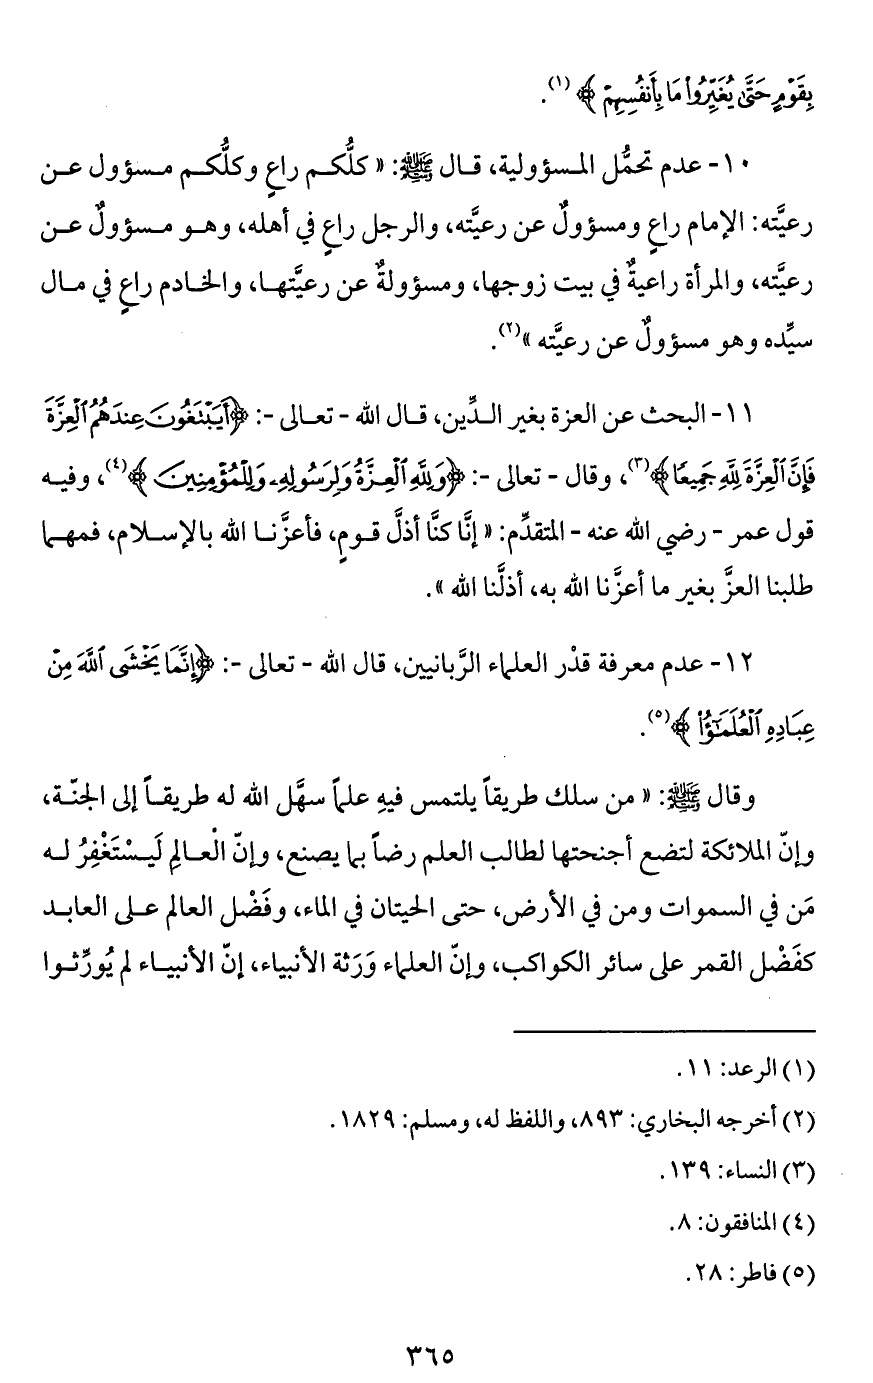 بِقَوْمٍ حَتَّىٰ يُغَيِّرُوا۟ مَا بِأَنفُسِهِمْ ﴾(١).
١٠- عدم تحمُّل المسؤولية، قال ﷺ: « كلُّكم راعٍ وكلُّكم مسؤول عن
رعيَّته: الإمام راعٍ ومسؤولٌ عن رعيَّته، والرجل راعٍ في أهله، وهو مسؤولٌ عن
رعيَّته، والمرأة راعيةٌ في بيت زوجها، ومسؤولةٌ عن رعيَّتها، والخادم راعٍ في مال
سيِّده وهو مسؤولٌ عن رعيَّته »(٢).
١١- البحث عن العزة بغير الدِّين، قال الله - تعالى -: ﴿أَيَبْتَغُونَ عِندَهُمُ ٱلْعِزَّةَ
فَإِنَّ ٱلْعِزَّةَ لِلَّهِ جَمِيعًا﴾(٣)، وقال - تعالى -: ﴿وَلِلَّهِ ٱلْعِزَّةُ وَلِرَسُولِهِۦ وَلِلْمُؤْمِنِينَ ﴾(٤)، وفيه
قول عمر - رضي الله عنه - المتقدِّم: « إنَّا كنَّا أذلَّ قومٍ، فأعزَّنا الله بالإسلام، فمهما
طلبنا العزَّ بغير ما أعزَّنا الله به، أذلَّنا الله ».
١٢- عدم معرفة قدْر العلماء الرَّبانيين، قال الله - تعالى -: ﴿إِنَّمَا يَخْشَى ٱللَّهَ مِنْ
عِبَادِهِ ٱلْعُلَمَـٰٓؤُا۟ ﴾(٥).
وقال ﷺ: « من سلك طريقاً يلتمس فيهِ علماً سهَّل الله له طريقاً إلى الجنّة،
وإنّ الملائكة لتضع أجنحتها لطالب العلم رضاً بما يصنع، وإنّ الْعالِم لَيسْتَغْفِرُ له
مَن في السموات ومن في الأرض، حتى الحيتان في الماء، وفَضْل العالم على العابد
كفَضْل القمر على سائر الكواكب، وإنّ العلماء وَرَثة الأنبياء، إنّ الأنبياء لم يُورِّثوا
(١) الرعد: ١١.
(٢) أخرجه البخاري: ٨٩٣، واللفظ له، ومسلم: ١٨٢٩.
(٣) النساء: ١٣٩.
(٤) المنافقون: ٨.
(٥) فاطر: ٢٨.
٣٦٥